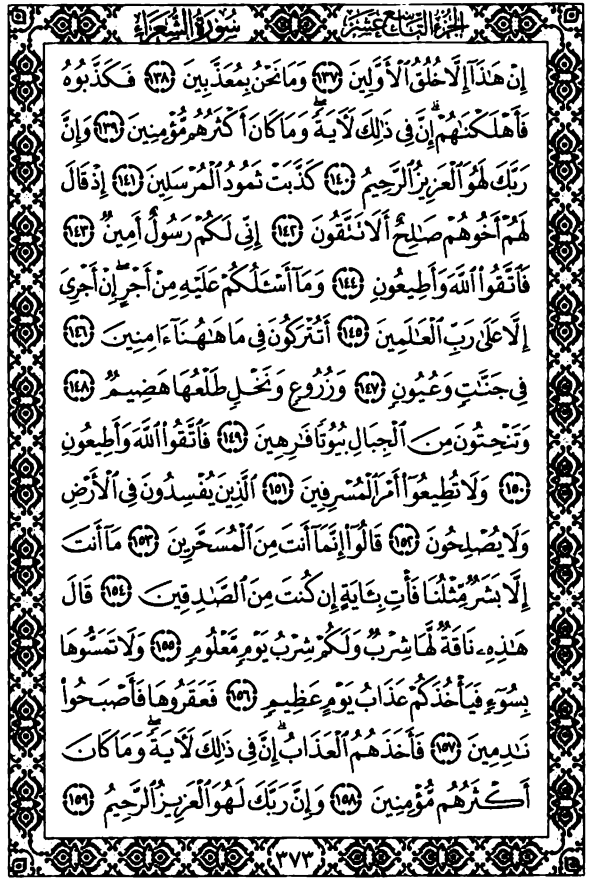 الجزء التاسع عشر سورة الشعراء
إِنْ هَٰذَآ إِلَّا خُلُقُ ٱلْأَوَّلِينَ ١٣٧ وَمَا نَحْنُ بِمُعَذَّبِينَ ١٣٨ فَكَذَّبُوهُ
فَأَهْلَكْنَٰهُمْ ۗ إِنَّ فِى ذَٰلِكَ لَـَٔايَةً ۖ وَمَا كَانَ أَكْثَرُهُم مُّؤْمِنِينَ ١٣٩ وَإِنَّ
رَبَّكَ لَهُوَ ٱلْعَزِيزُ ٱلرَّحِيمُ ١٤٠ كَذَّبَتْ ثَمُودُ ٱلْمُرْسَلِينَ ١٤١ إِذْ قَالَ
لَهُمْ أَخُوهُمْ صَٰلِحٌ أَلَا تَتَّقُونَ ١٤٢ إِنِّى لَكُمْ رَسُولٌ أَمِينٌ ١٤٣
فَٱتَّقُوا۟ ٱللَّهَ وَأَطِيعُونِ ١٤٤ وَمَآ أَسْـَٔلُكُمْ عَلَيْهِ مِنْ أَجْرٍ ۖ إِنْ أَجْرِىَ
إِلَّا عَلَىٰ رَبِّ ٱلْعَٰلَمِينَ ١٤٥ أَتُتْرَكُونَ فِى مَا هَٰهُنَآ ءَامِنِينَ ١٤٦
فِى جَنَّٰتٍ وَعُيُونٍ ١٤٧ وَزُرُوعٍ وَنَخْلٍ طَلْعُهَا هَضِيمٌ ١٤٨
وَتَنْحِتُونَ مِنَ ٱلْجِبَالِ بُيُوتًا فَٰرِهِينَ ١٤٩ فَٱتَّقُوا۟ ٱللَّهَ وَأَطِيعُونِ
١٥٠ وَلَا تُطِيعُوٓا۟ أَمْرَ ٱلْمُسْرِفِينَ ١٥١ ٱلَّذِينَ يُفْسِدُونَ فِى ٱلْأَرْضِ
وَلَا يُصْلِحُونَ ١٥٢ قَالُوٓا۟ إِنَّمَآ أَنتَ مِنَ ٱلْمُسَحَّرِينَ ١٥٣ مَآ أَنتَ
إِلَّا بَشَرٌ مِّثْلُنَا فَأْتِ بِـَٔايَةٍ إِن كُنتَ مِنَ ٱلصَّٰدِقِينَ ١٥٤ قَالَ
هَٰذِهِۦ نَاقَةٌ لَّهَا شِرْبٌ وَلَكُمْ شِرْبُ يَوْمٍ مَّعْلُومٍ ١٥٥ وَلَا تَمَسُّوهَا
بِسُوٓءٍ فَيَأْخُذَكُمْ عَذَابُ يَوْمٍ عَظِيمٍ ١٥٦ فَعَقَرُوهَا فَأَصْبَحُوا۟
نَٰدِمِينَ ١٥٧ فَأَخَذَهُمُ ٱلْعَذَابُ ۗ إِنَّ فِى ذَٰلِكَ لَـَٔايَةً ۖ وَمَا كَانَ
أَكْثَرُهُم مُّؤْمِنِينَ ١٥٨ وَإِنَّ رَبَّكَ لَهُوَ ٱلْعَزِيزُ ٱلرَّحِيمُ ١٥٩
٣٧٣